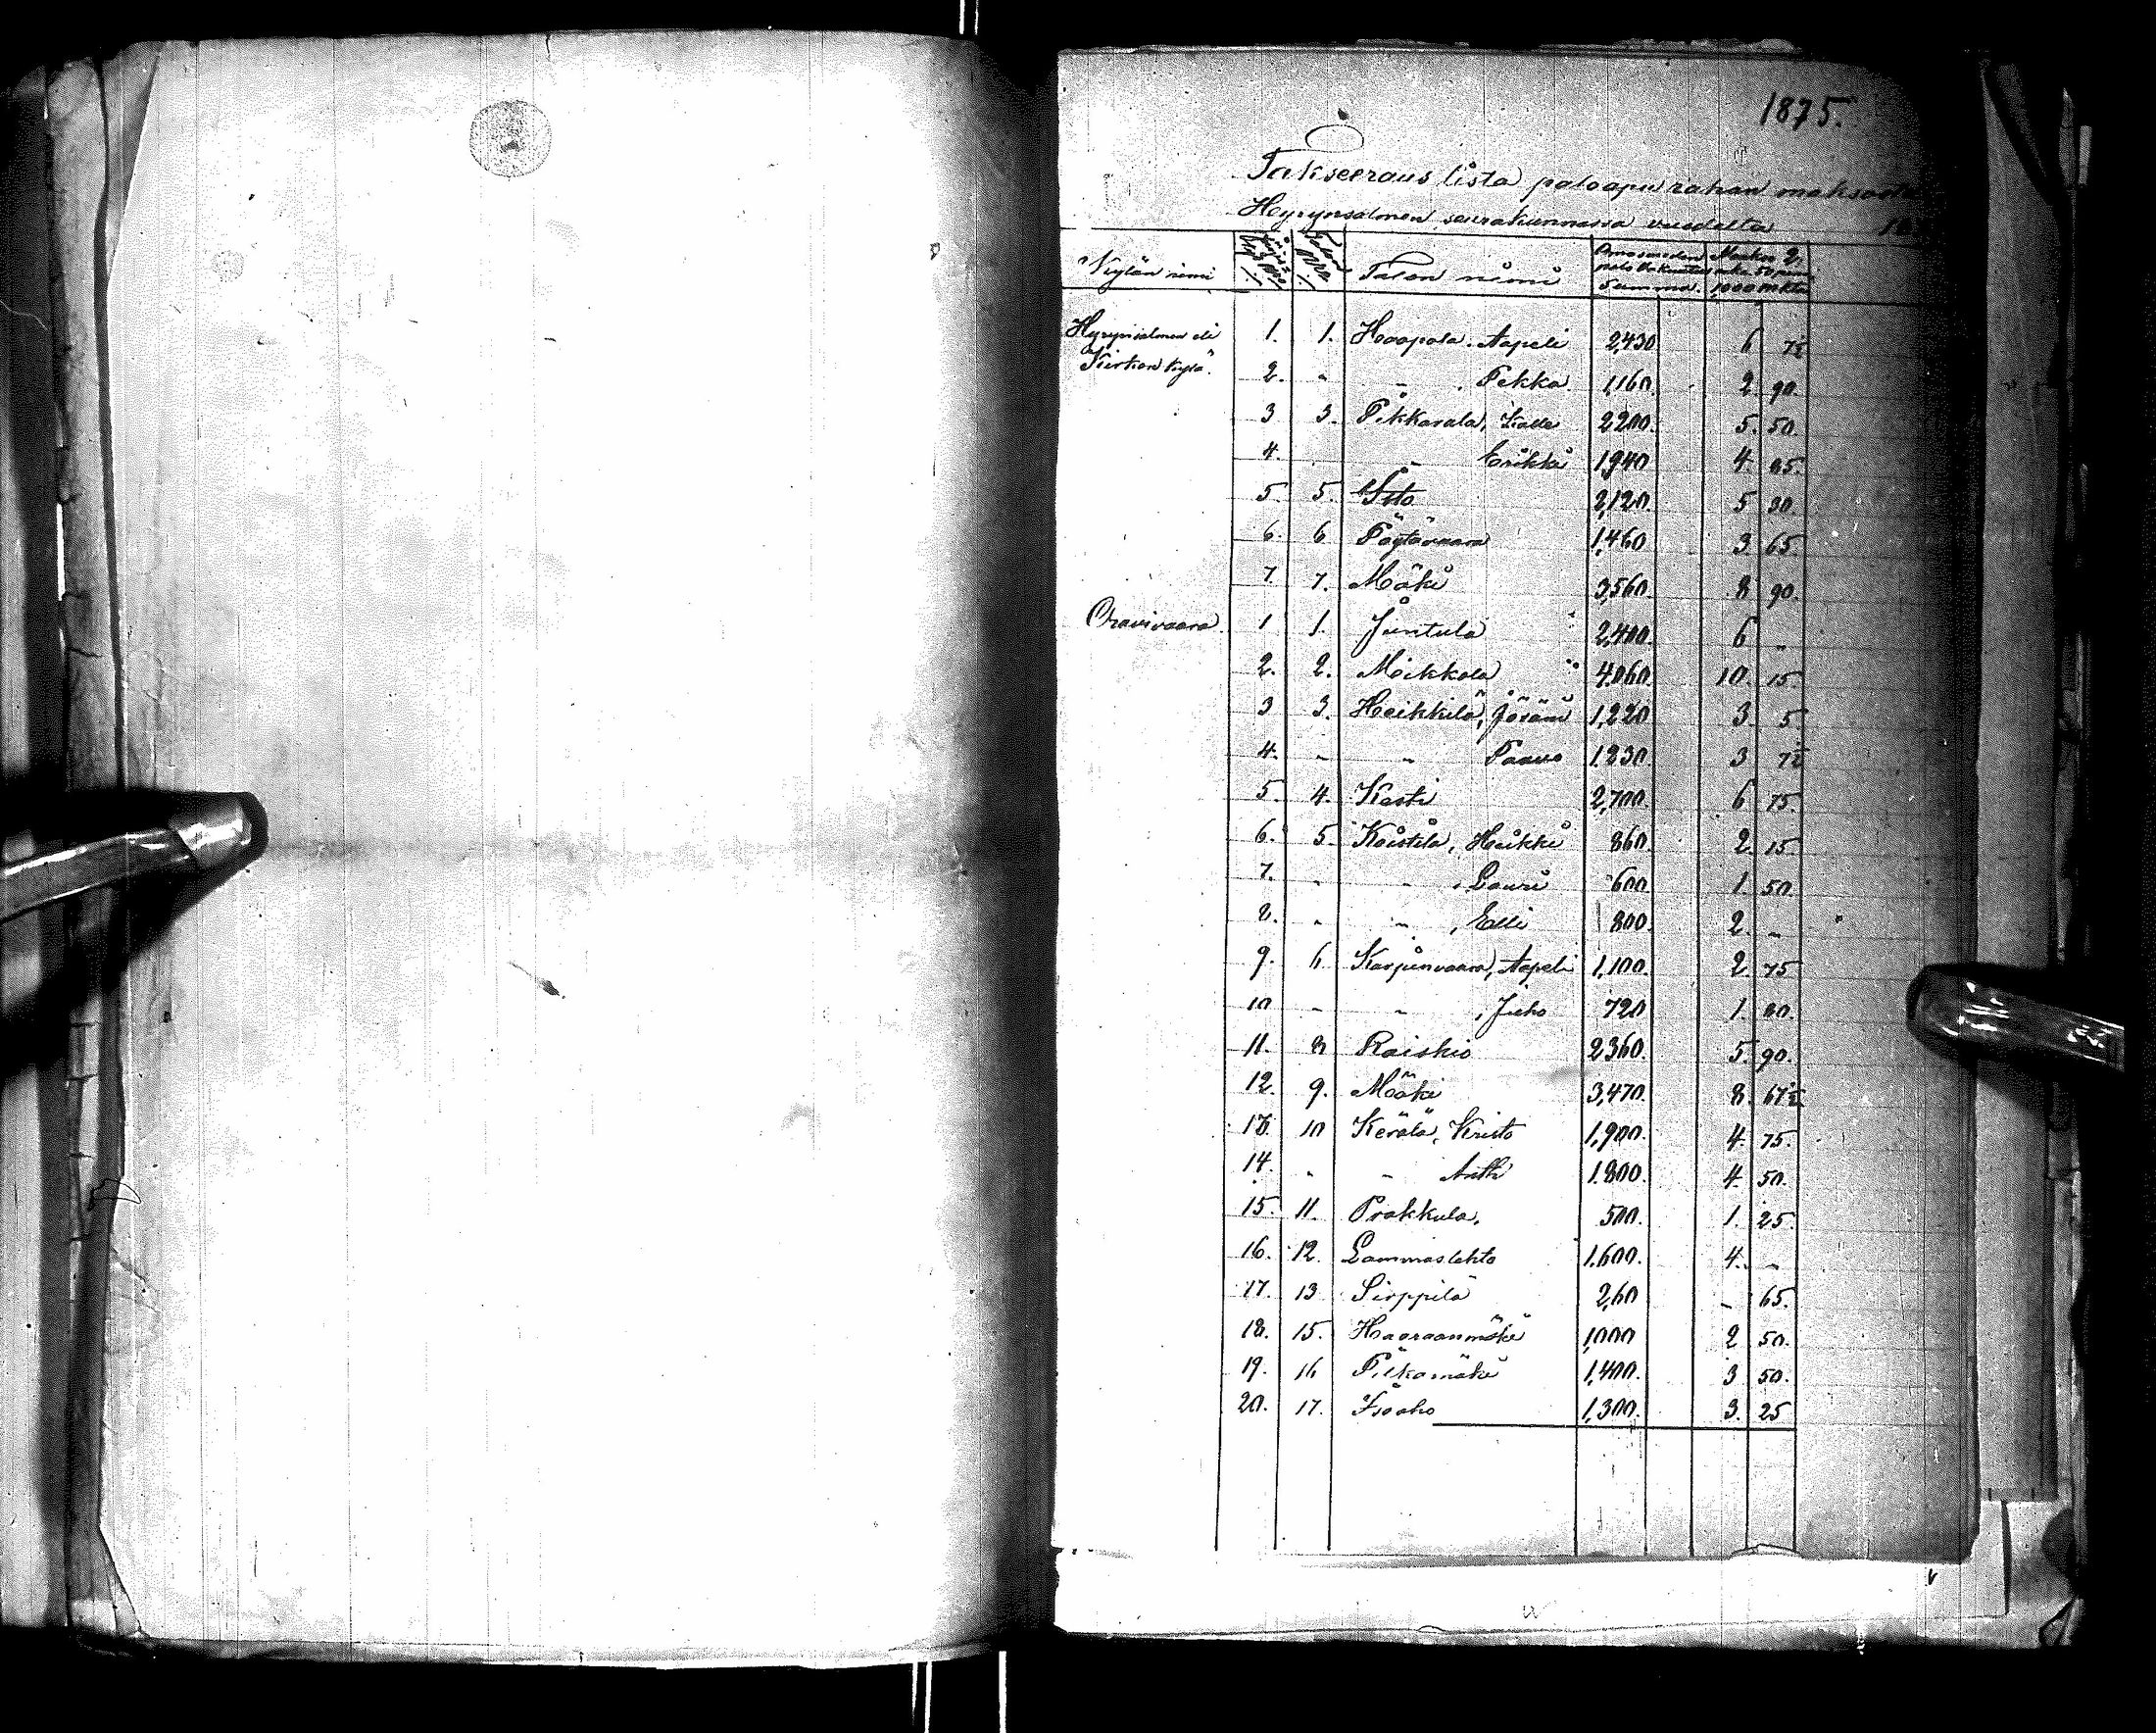 1875.
Takseeraus lista paloapu rahan maksosta
Hyrynsalmen seurakunnassa vuodelta 18
Kylän nimi Talon N:ro Talon nimi Omaisuuden palo Vakuutus Summa. Maksu 2, mk. 50 penn 1,000 mkta
Hyrynsalmen eli 1. 1. Haapala. Aapeli 2,430 6 7½
Kirkon kylä. 2. " " , Pekka. 1,160. 2. 90.
3 3. Pikkarala, Kalle 2200. 5. 50.
4. " Erikki 1940 4. 85.
5 5. Sito 2,120. 5 30.
6. 6 Pöytävaara 1,460 3 65.
7 7. Mäki 3,560 8 90.
Oravivaara. 1 1. Juntula 2,400. 6 "
2. 2. Moikkala 4,060. 10. 15.
3 3. Heikkilä, Jöräm 1,220 3. 5.
4. " " Paavo 1,230. 3 7½
5. 4. Kesti 2,700. 6 75.
6. 5. Koistila, Heikki 860. 2. 15.
7. " " , Lauri 600 1. 50.
8. " " , Elli 800. 2. "
9. 6 Karpinvaara, Aapeli 1,100. 2 75
10 " " , Juho 720 1. 80.
11. 8 Raiskio 2360. 5. 90.
12. 9. Mäki 3,470. 8. 67½
13. 10 Kerälä, Kristo 1,900. 4. 75.
14. " " Antti 1.800. 4. 50.
15. 11. Prakkula. 500. 1. 25.
16. 12. Lammaslehto 1.600. 4. "
17. 13 Sirppilä 2,60 " 65.
18. 15. Haaraanmäki 1,000 2 50.
19. 16 Piikamäki 1,400. 3 50.
20. 17. Isoaho 1,300. 3. 25